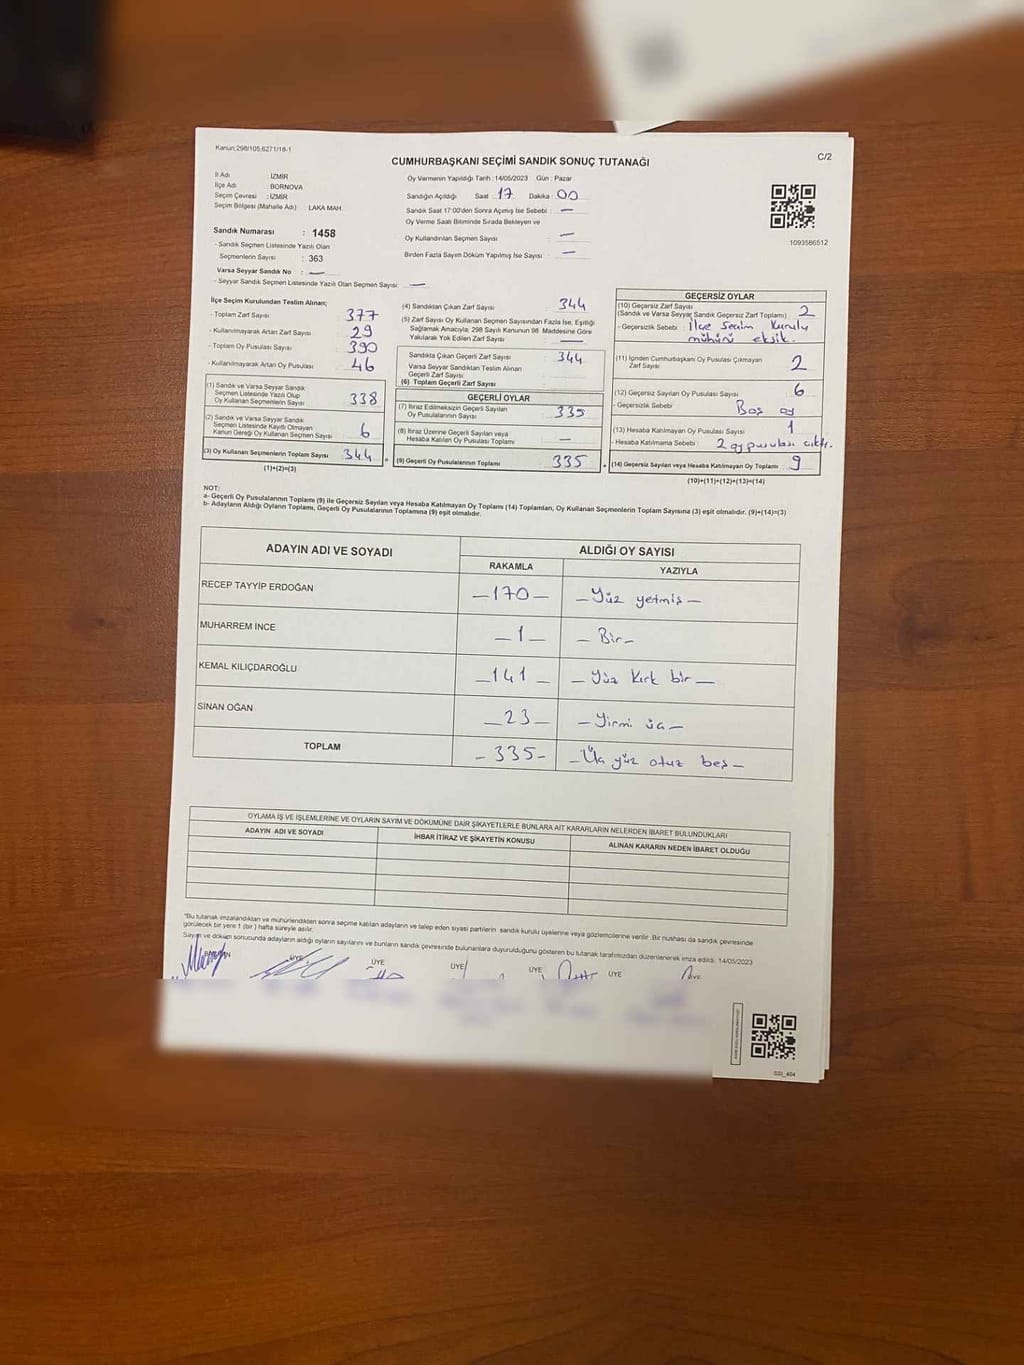 Kanun:298/105,6271/18-1
CUMHURBAŞKANI SEÇİMİ SANDIK SONUÇ TUTANAĞI
C/2
İl Adı : İZMİR
İlçe Adı : BORNOVA
Seçim Çevresi : İZMİR
Seçim Bölgesi (Mahalle Adı) : LAKA MAH.
Sandık Numarası : 1458
- Sandık Seçmen Listesinde Yazılı Olan
Seçmenlerin Sayısı : 363
Varsa Seyyar Sandık No : —
- Seyyar Sandık Seçmen Listesinde Yazılı Olan Seçmen Sayısı : —
Oy Vermenin Yapıldığı Tarih : 14/05/2023 Gün : Pazar
Sandığın Açıldığı Saat : 17 Dakika : 00
Sandık Saat 17:00'den Sonra Açılmış İse Sebebi : —
Oy Verme Saati Bitiminde Sırada Bekleyen ve
Oy Kullandırılan Seçmen Sayısı : —
Birden Fazla Sayım Döküm Yapılmış İse Sayısı : —
1093586512
İlçe Seçim Kurulundan Teslim Alınan;
- Toplam Zarf Sayısı : 377
- Kullanılmayarak Artan Zarf Sayısı : 29
- Toplam Oy Pusulası Sayısı : 390
- Kullanılmayarak Artan Oy Pusulası : 46
(1) Sandık ve Varsa Seyyar Sandık
Seçmen Listesinde Yazılı Olup
Oy Kullanan Seçmenlerin Sayısı : 338
(2) Sandık ve Varsa Seyyar Sandık
Seçmen Listesinde Kayıtlı Olmayan
Kanun Gereği Oy Kullanan Seçmen Sayısı : 6
(3) Oy Kullanan Seçmenlerin Toplam Sayısı : 344
(1)+(2)=(3)
(4) Sandıktan Çıkan Zarf Sayısı : 344
(5) Zarf Sayısı Oy Kullanan Seçmen Sayısından Fazla İse, Eşitliği
Sağlamak Amacıyla; 298 Sayılı Kanunun 98 Maddesine Göre
Yakılarak Yok Edilen Zarf Sayısı : —
Sandıkta Çıkan Geçerli Zarf Sayısı : 344
Varsa Seyyar Sandıktan Teslim Alınan
Geçerli Zarf Sayısı
(6) Toplam Geçerli Zarf Sayısı
GEÇERLİ OYLAR
(7) İtiraz Edilmeksizin Geçerli Sayılan
Oy Pusulalarının Sayısı : 335
(8) İtiraz Üzerine Geçerli Sayılan veya
Hesaba Katılan Oy Pusulası Toplamı : —
(9) Geçerli Oy Pusulalarının Toplamı : 335
GEÇERSİZ OYLAR
(10) Geçersiz Zarf Sayısı : 2
(Sandık ve Varsa Seyyar Sandık Geçersiz Zarf Toplamı)
- Geçersizlik Sebebi : İlçe Seçim Kurulu
mühürü eksik.
(11) İçinden Cumhurbaşkanı Oy Pusulası Çıkmayan
Zarf Sayısı : 2
(12) Geçersiz Sayılan Oy Pusulası Sayısı : 6
- Geçersizlik Sebebi : Boş oy
(13) Hesaba Katılmayan Oy Pusulası Sayısı : 1
- Hesaba Katılmama Sebebi : 2 oy pusulası çıktı.
(14) Geçersiz Sayılan veya Hesaba Katılmayan Oy Toplamı : 9
(10)+(11)+(12)+(13)=(14)
NOT:
a- Geçerli Oy Pusulalarının Toplamı (9) ile Geçersiz Sayılan veya Hesaba Katılmayan Oy Toplamı (14) Toplamları, Oy Kullanan Seçmenlerin Toplam Sayısına (3) eşit olmalıdır. (9)+(14)=(3)
b- Adayların Aldığı Oyların Toplamı, Geçerli Oy Pusulalarının Toplamına (9) eşit olmalıdır.
ADAYIN ADI VE SOYADI ALDIĞI OY SAYISI
RAKAMLA YAZIYLA
RECEP TAYYİP ERDOĞAN —170— —Yüz yetmiş—
MUHARREM İNCE —1— —Bir—
KEMAL KILIÇDAROĞLU —141— —Yüz Kırk bir—
SİNAN OĞAN —23— —Yirmi üç—
TOPLAM —335— —Üç yüz otuz beş—
OYLAMA İŞ VE İŞLEMLERİNE VE OYLARIN SAYIM VE DÖKÜMÜNE DAİR ŞİKAYETLERLE BUNLARA AİT KARARLARIN NELERDEN İBARET BULUNDUKLARI
ADAYIN ADI VE SOYADI İHBAR İTİRAZ VE ŞİKAYETİN KONUSU ALINAN KARARIN NEDEN İBARET OLDUĞU
*Bu tutanak imzalandıktan ve mühürlendikten sonra seçime katılan adayların ve talep eden siyasi partilerin sandık kurulu üyelerine veya gözlemcilerine verilir. Bir nushası da sandık çevresinde
görülecek bir yere 1 (bir) hafta süreyle asılır.
Sayım ve döküm sonucunda adayların aldığı oyların sayılarını ve bunların sandık çevresinde bulunanlara duyurulduğunu gösteren bu tutanak tarafımızdan düzenlenerek imza edildi. 14/05/2023
BAŞKAN ÜYE ÜYE ÜYE ÜYE ÜYE ÜYE
SSI_404